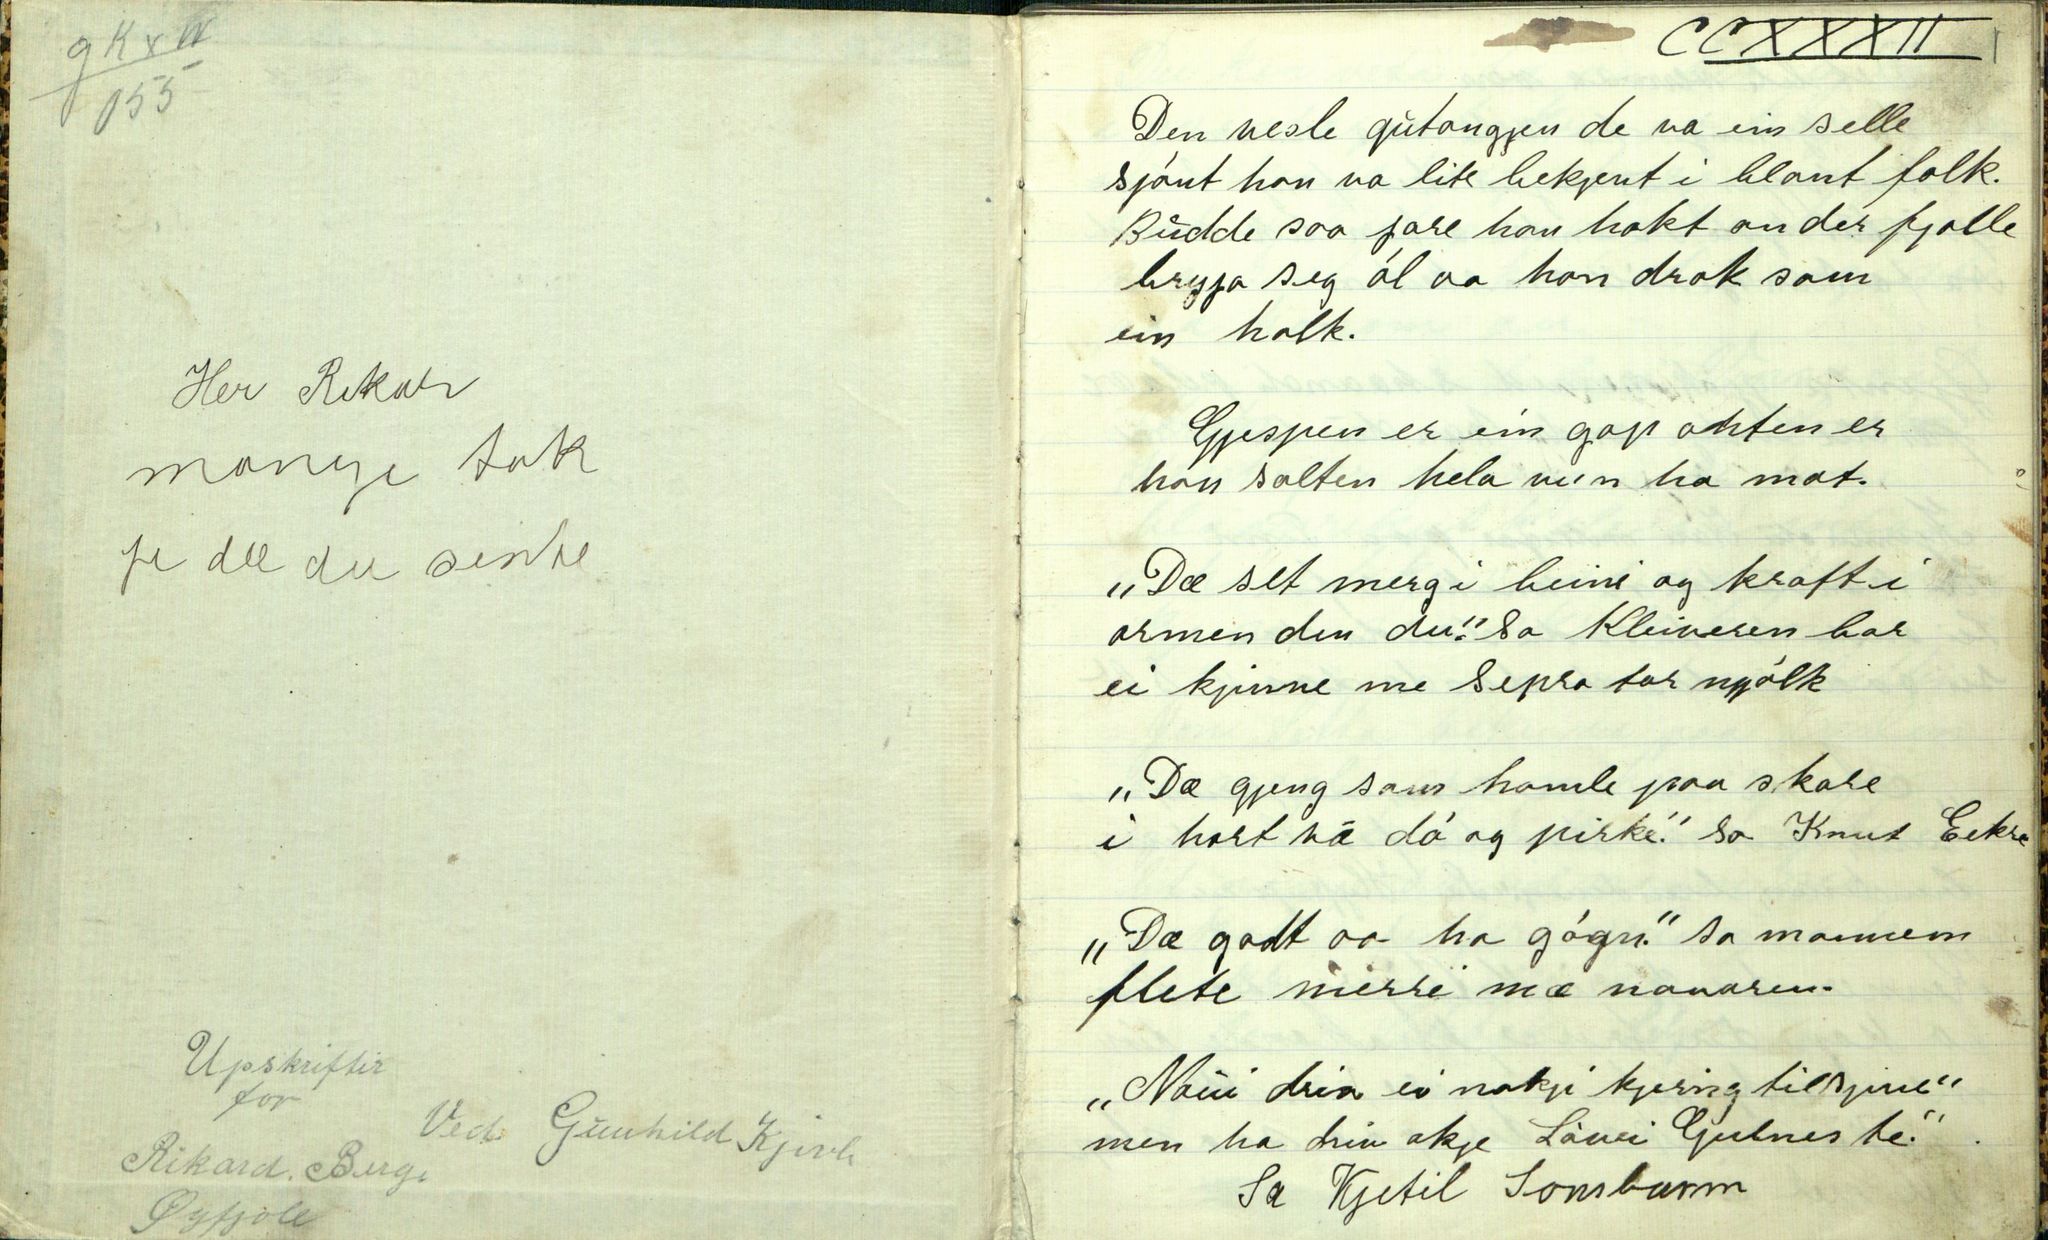 155
Her Rikar
mange tak
fe dæ du sente
Upskriftir
for
Rikard. Berge
Øyfjöle
Ved Gunhild Kjivle
CCXXXII
1
Den vesle gŭtongjen de va ein selle
sjónt han va lite bekjent i blant folk.
Bŭdde saa fare han hakt onder fjolle
bryja seg ól aa han drak som
ein halk.
Gjespen er ein gap ahten er
han salten hela vin ha mat.
„Dæ set merg i beini og kraft i
armen den du." Sa Kleiveren bar
ei kjinne me Sepra tar mjólk
„Dæ gjeng som hamle paa skare
i hart væ dó og pirke." Sa Knut Eekre
„Dæ godt aa ha gógn." Sa mannem
flete merri mæ navaren.
„Naui drin ei nokji kjering til sjine"
men ha drin okje Låvei Gutnes te."
Sa Kjetil Sonsbarm